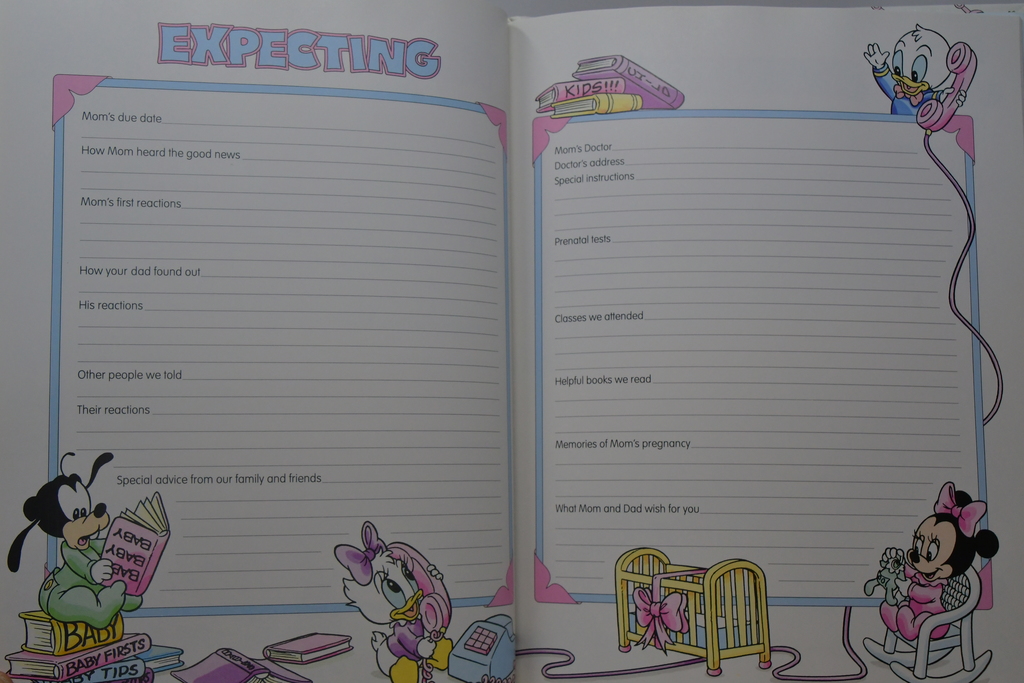 EXPECTING
Mom's due date
How Mom heard the good news
Mom's first reactions
How your dad found out
His reactions
Other people we told
Their reactions
Special advice from our family and friends
BABY
BABY
BABY
BABY
BABY FIRSTS
BABY TIPS
KIDS!!!
Mom's Doctor
Doctor's address
Special instructions
Prenatal tests
Classes we attended
Helpful books we read
Memories of Mom's pregnancy
What Mom and Dad wish for you